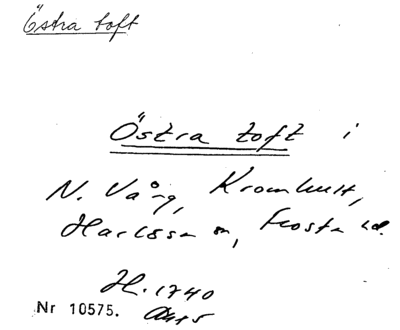 Östra toft
Östra toft i
N. Vång, Kromhult,
Harlösa sn, Frosta hd.
H. 1740
Nr 10575.